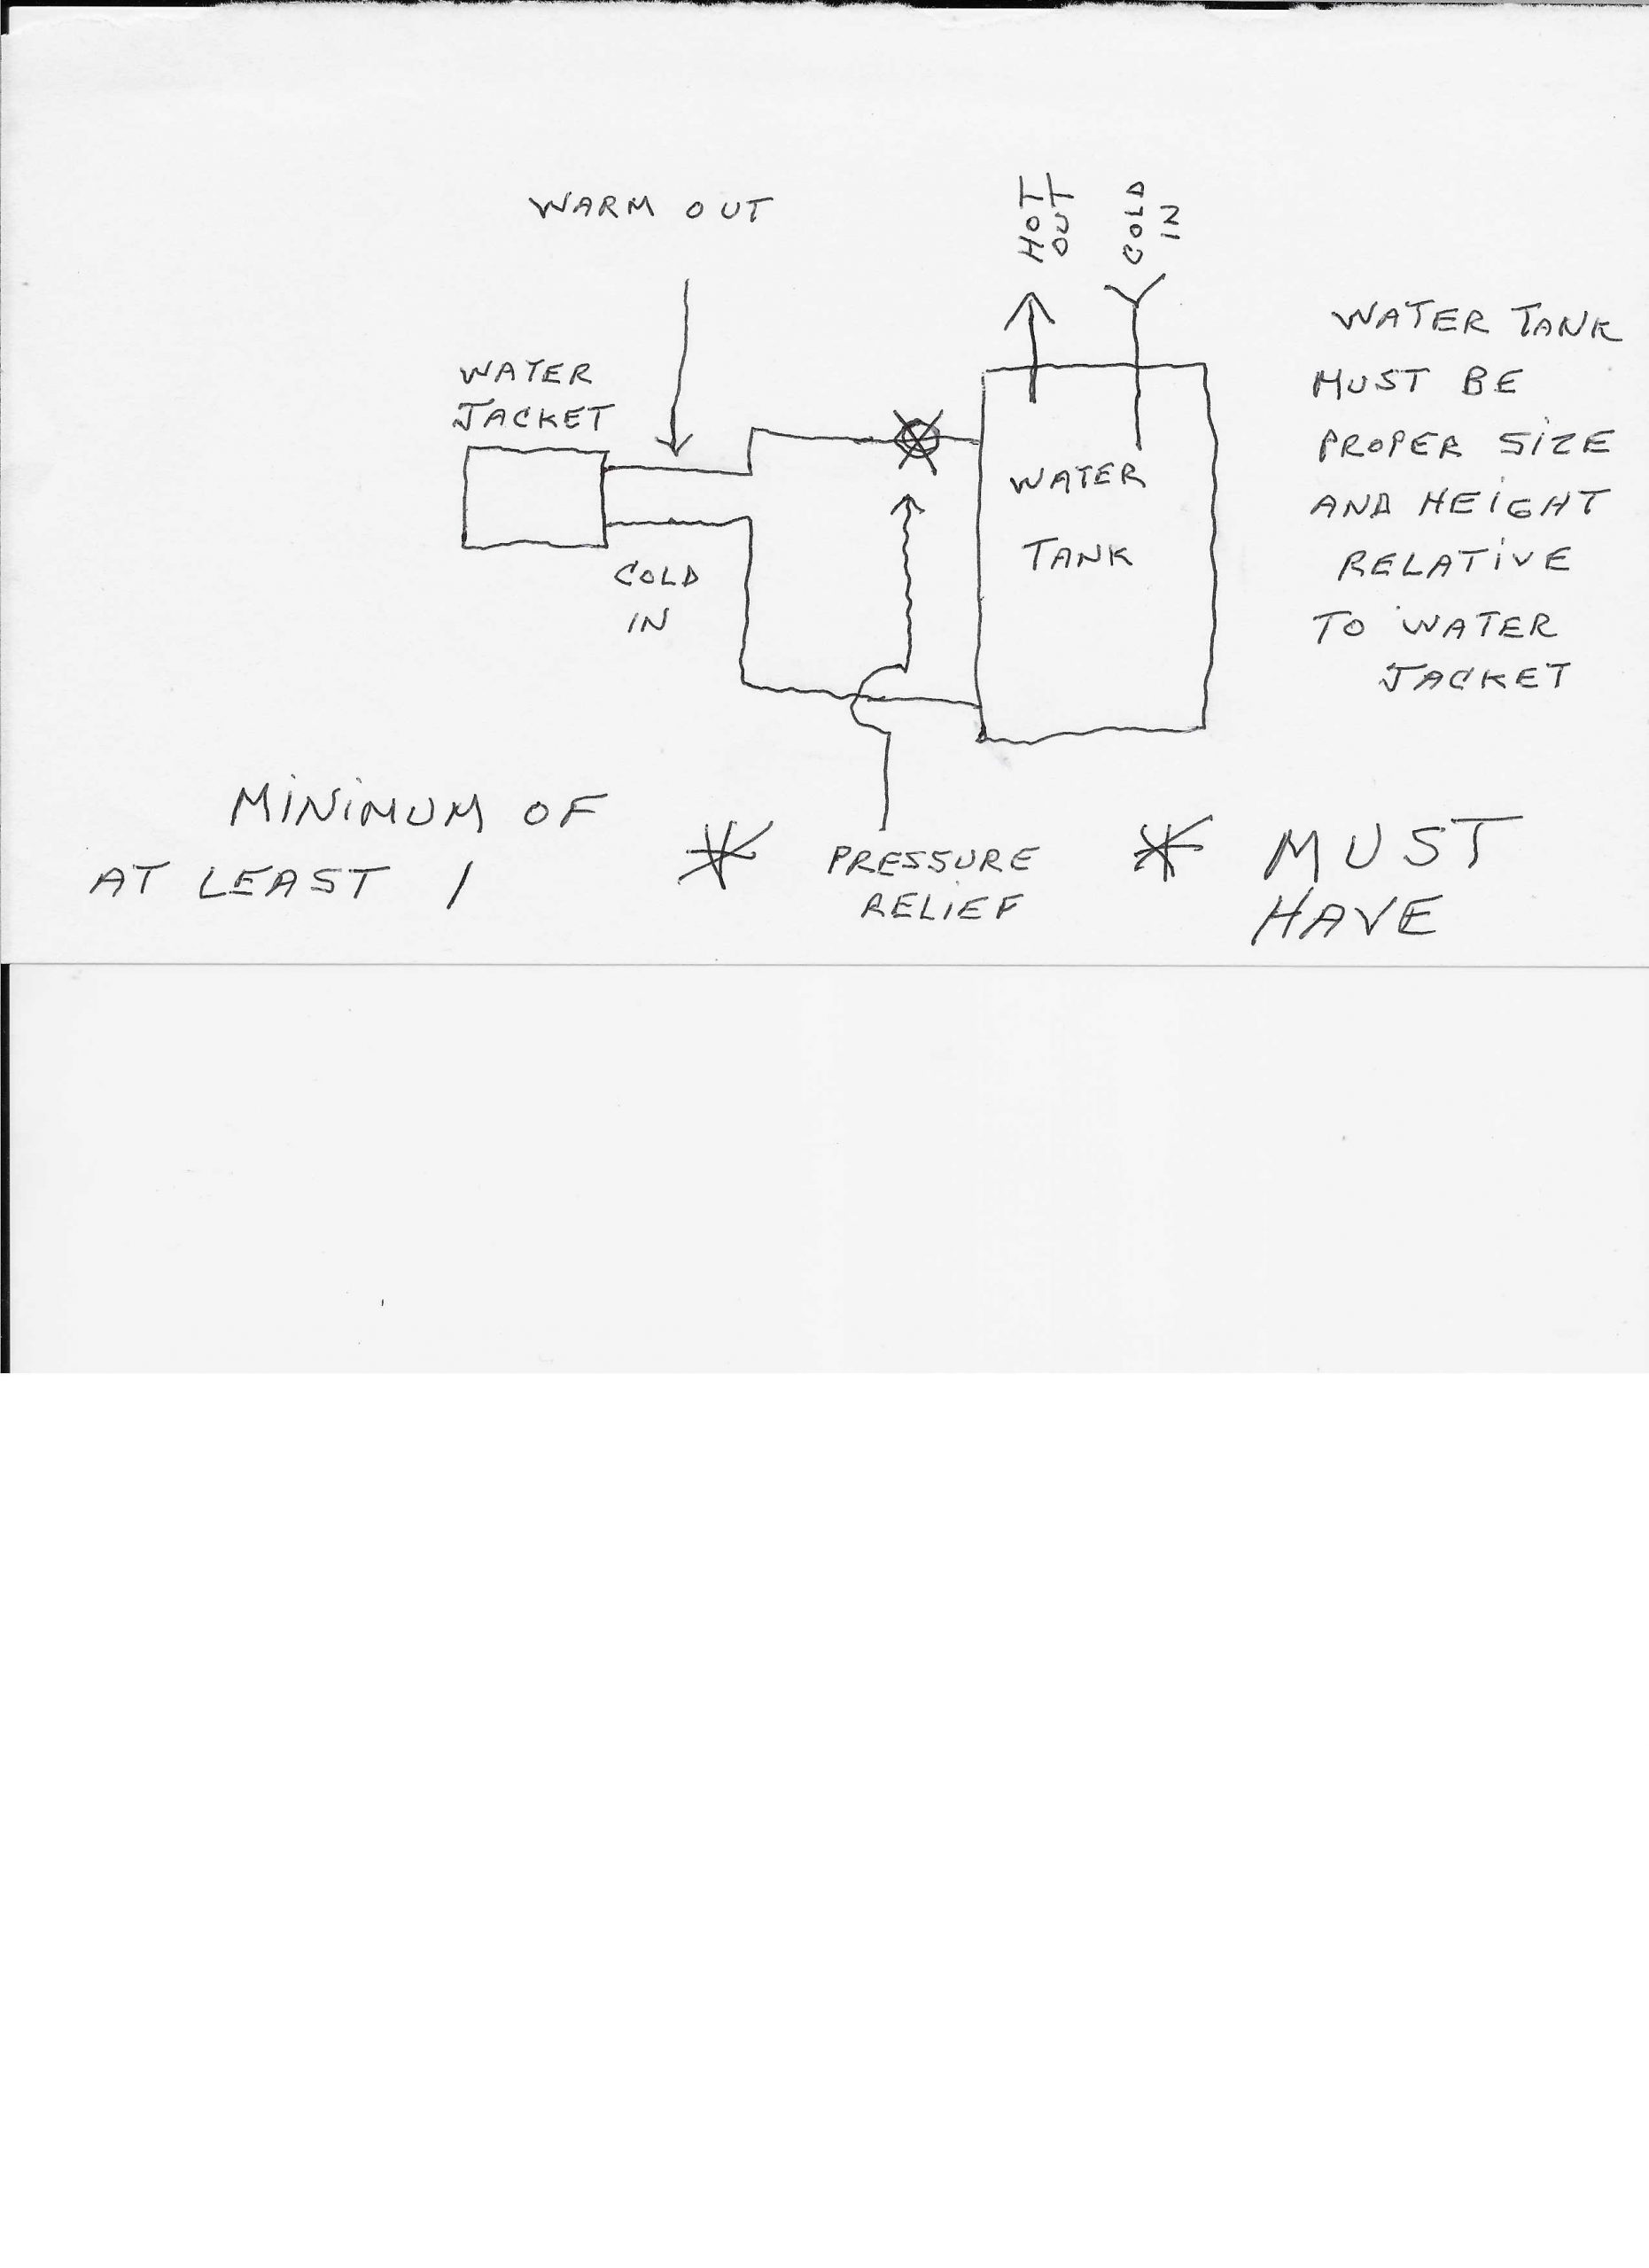 WARM OUT
HOT
OUT
COLD
IN
WATER
JACKET
WATER TANK
MUST BE
PROPER SIZE
AND HEIGHT
RELATIVE
TO WATER
JACKET
WATER
TANK
COLD
IN
MINIMUM OF
AT LEAST 1
* PRESSURE
RELIEF
* MUST
HAVE